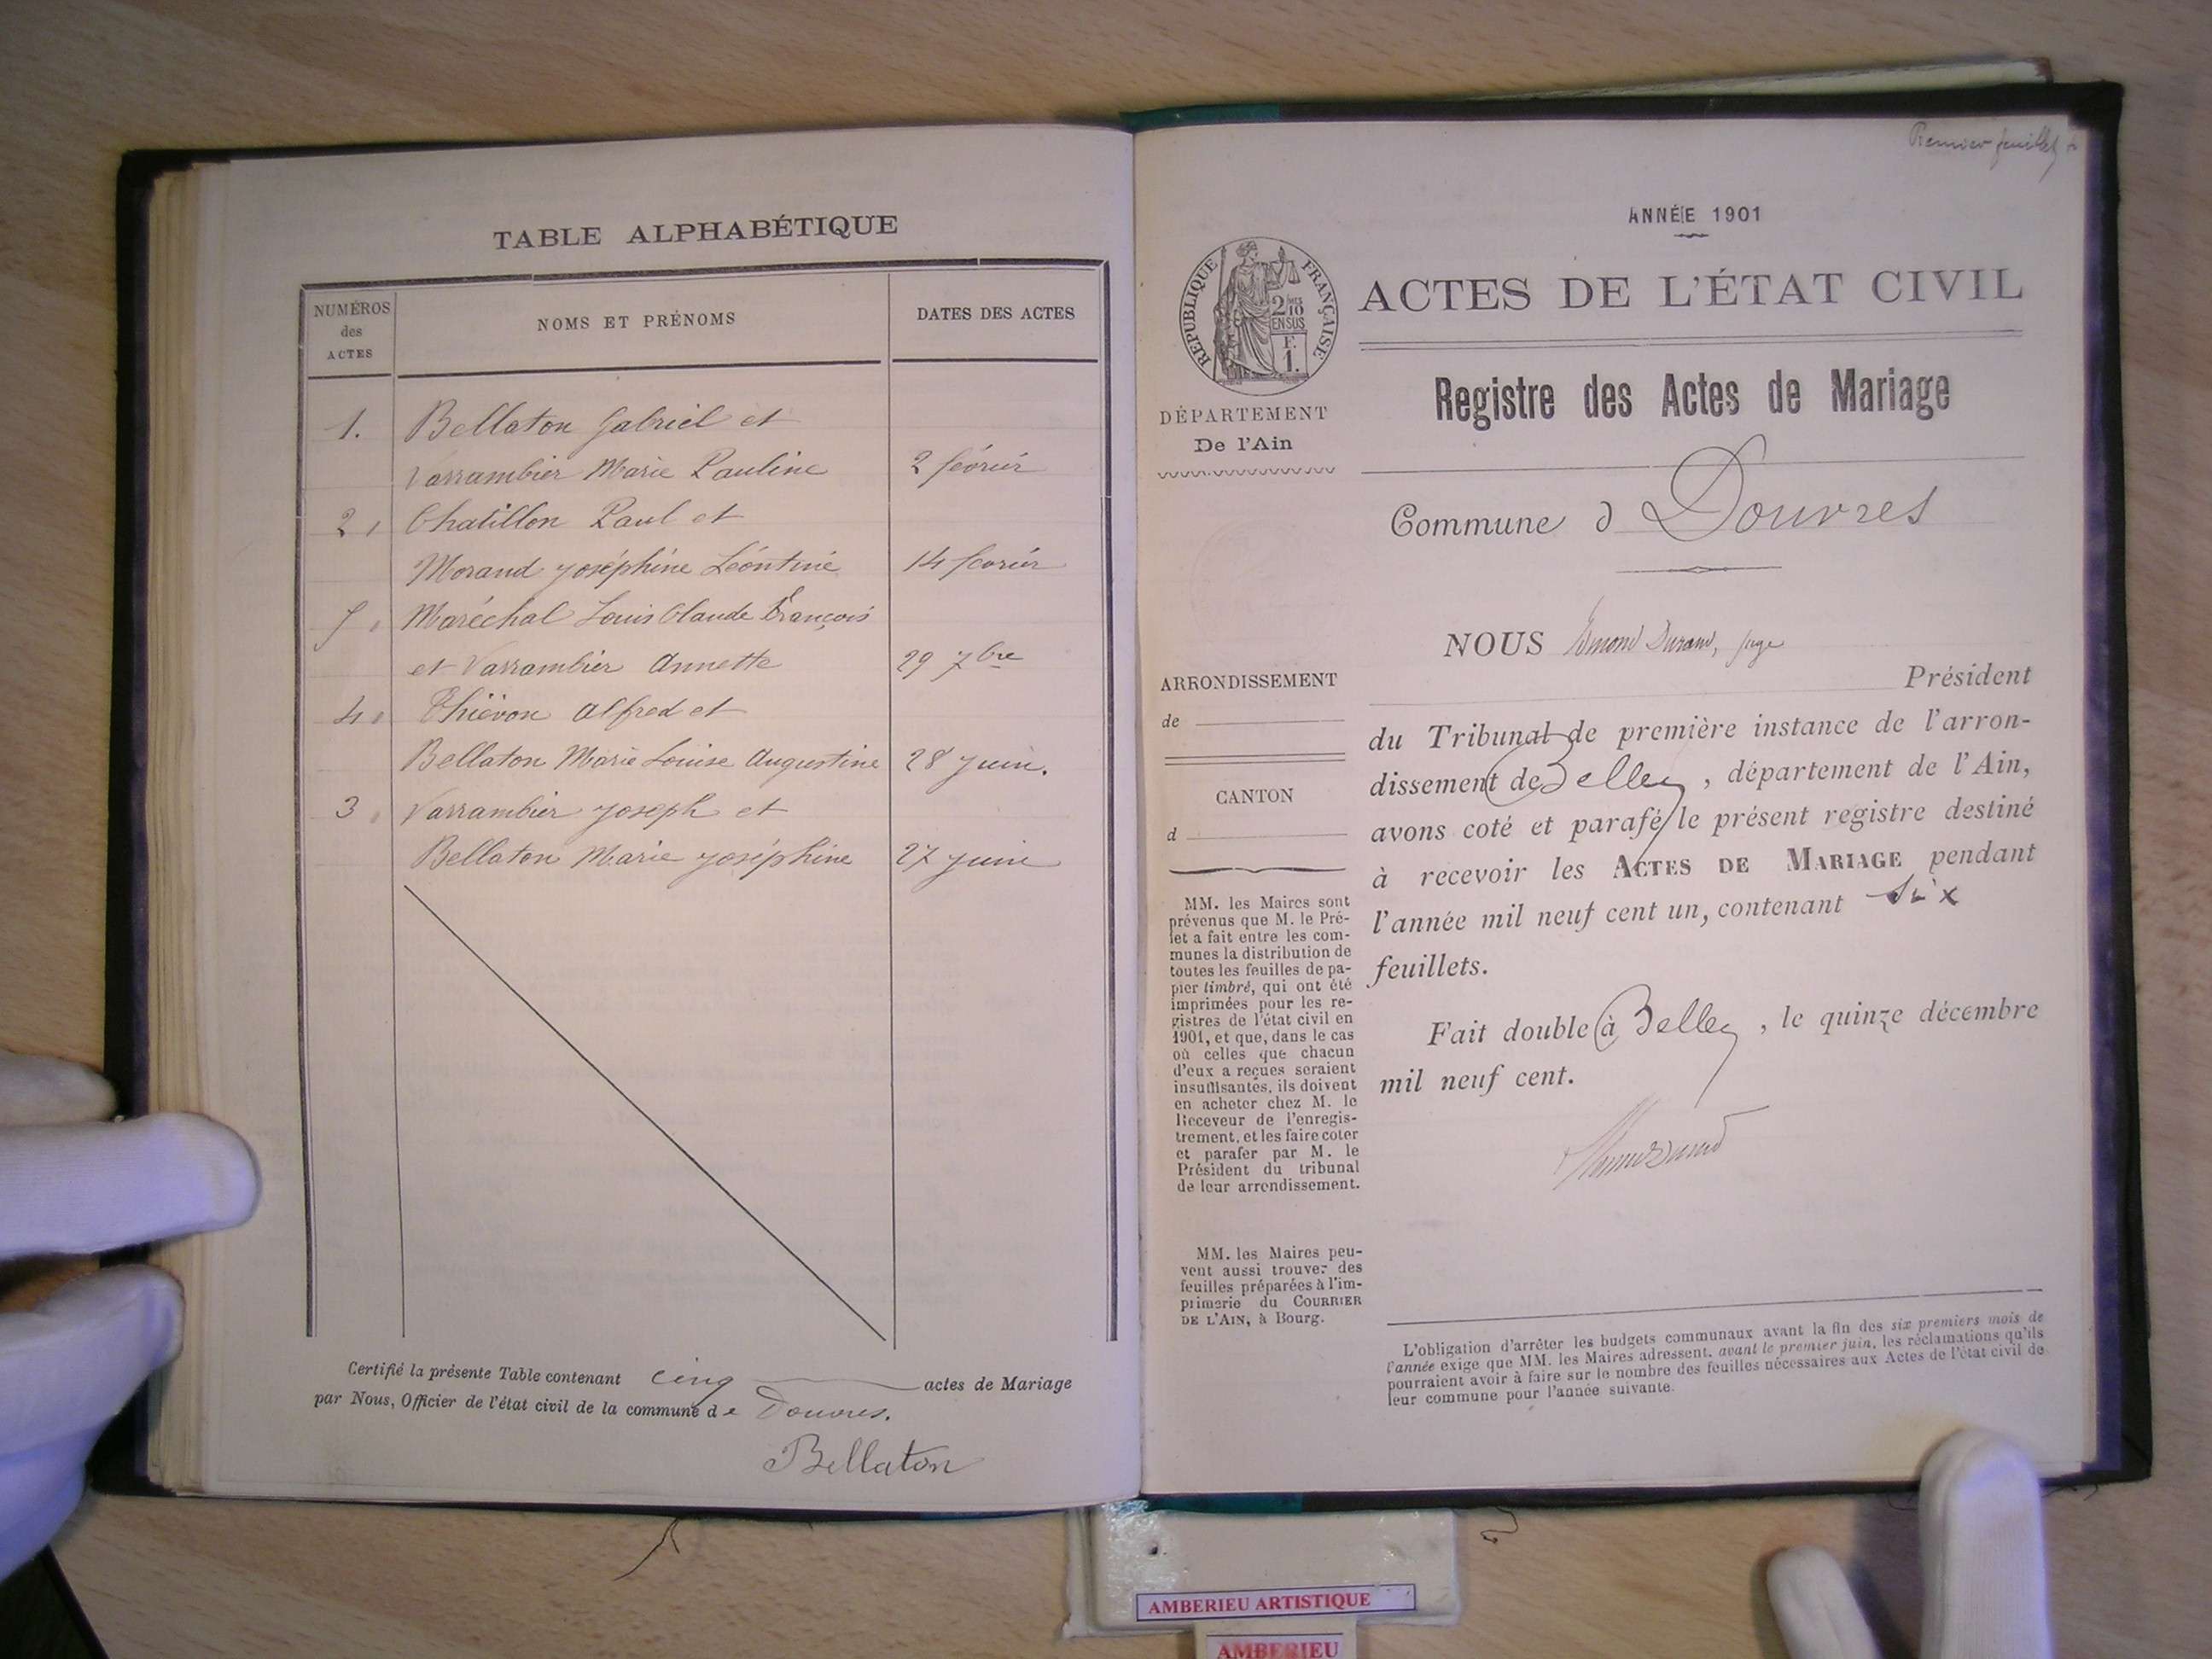 TABLE ALPHABÉTIQUE
NUMÉROS
des
ACTES
NOMS ET PRÉNOMS
DATES DES ACTES
1. Bellaton Gabriel et
Varrambier Marie Pauline 2 février
2. Chatillon Paul et
Morand Joséphine Léontine 14 février
5. Maréchal Louis Claude François
et Varrambier Annette 29 7bre
4. Thiévon Alfred et
Bellaton Marie Louise Augustine 28 Juin.
3. Varrambier Joseph et
Bellaton Marie Joséphine 27 Juin
Certifié la présente Table contenant cinq actes de Mariage
par Nous, Officier de l'état civil de la commune de Douvres.
Bellaton
Premier feuillet
ANNÉE 1901
RÉPUBLIQUE FRANÇAISE
2/10
EN SUS
F.
1.
ACTES DE L'ÉTAT CIVIL
Registre des Actes de Mariage
DÉPARTEMENT
De l'Ain
Commune d Douvres
NOUS Edmond Durand, juge
Président
du Tribunal de première instance de l'arron-
dissement de Belley, département de l'Ain,
avons coté et parafé le présent registre destiné
à recevoir les ACTES DE MARIAGE pendant
l'année mil neuf cent un, contenant six
feuillets.
Fait double à Belley, le quinze décembre
mil neuf cent.
ARRONDISSEMENT
de
CANTON
d
MM. les Maires sont
prévenus que M. le Pré-
fet a fait entre les com-
munes la distribution de
toutes les feuilles de pa-
pier timbré, qui ont été
imprimées pour les re-
gistres de l'état civil en
1901, et que, dans le cas
où celles que chacun
d'eux a reçues seraient
insuffisantes, ils doivent
en acheter chez M. le
Receveur de l'enregis-
trement, et les faire coter
et parafer par M. le
Président du tribunal
de leur arrondissement.
MM. les Maires peu-
vent aussi trouver des
feuilles préparées à l'im-
primerie du COURRIER
DE L'AIN, à Bourg.
L'obligation d'arrêter les budgets communaux avant la fin des six premiers mois de
l'année exige que MM. les Maires adressent, avant le premier juin, les réclamations qu'ils
pourraient avoir à faire sur le nombre des feuilles nécessaires aux Actes de l'état civil de
leur commune pour l'année suivante.
AMBERIEU ARTISTIQUE
AMBERIEU